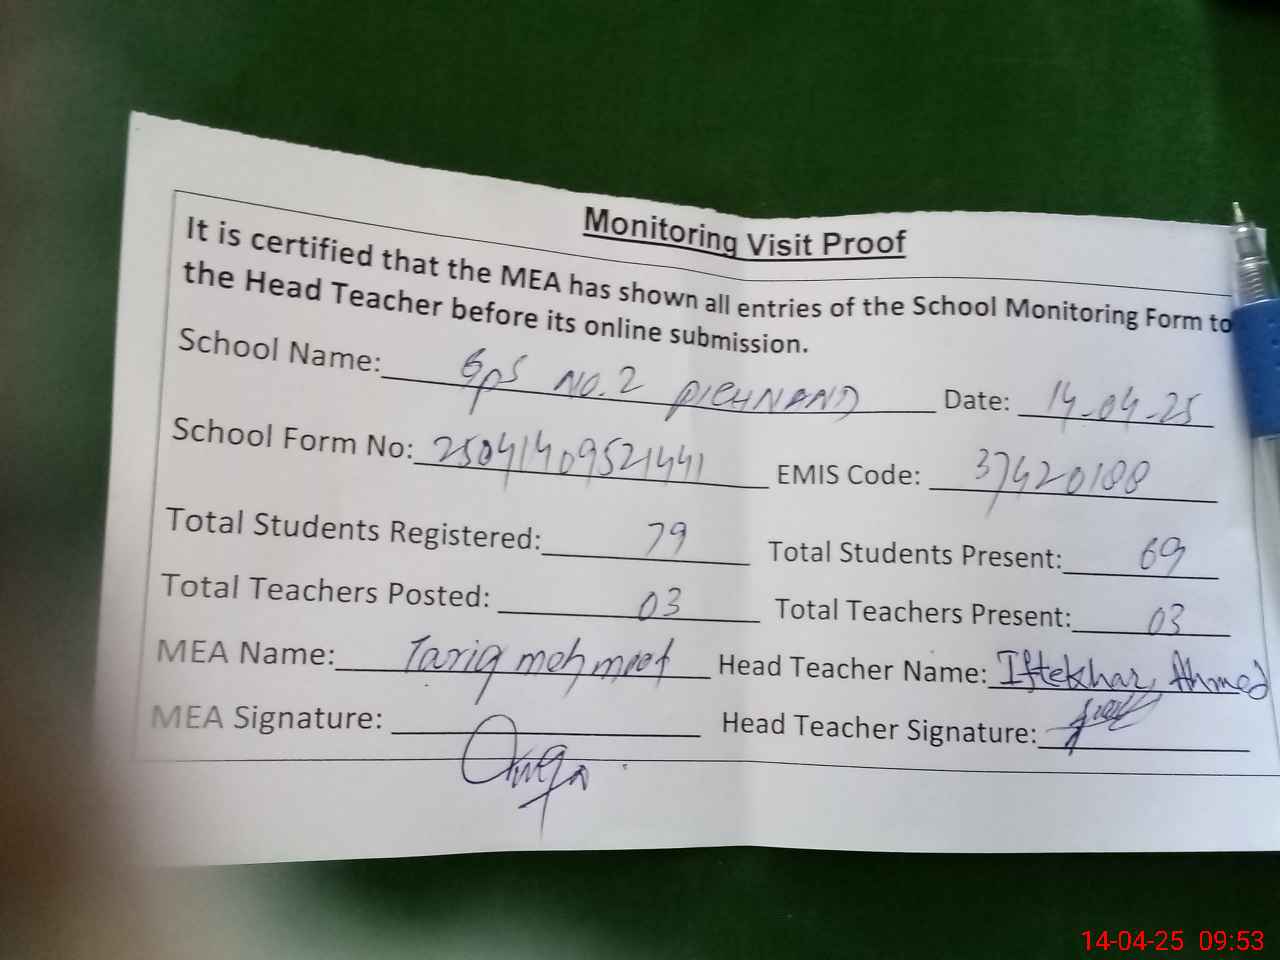 Monitoring Visit Proof
It is certified that the MEA has shown all entries of the School Monitoring Form to
the Head Teacher before its online submission.
School Name: GPS NO.2 PICHNAND Date: 14-04-25
School Form No: 25041409521441 EMIS Code: 37420188
Total Students Registered: 79 Total Students Present: 69
Total Teachers Posted: 03 Total Teachers Present: 03
MEA Name: Tariq Head Teacher Name: Iftekhar Ahmed
MEA Signature: Head Teacher Signature:
14-04-25 09:53